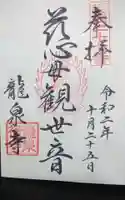 奉拝
令和二年
十月二十五日
慈母観世音
龍泉寺